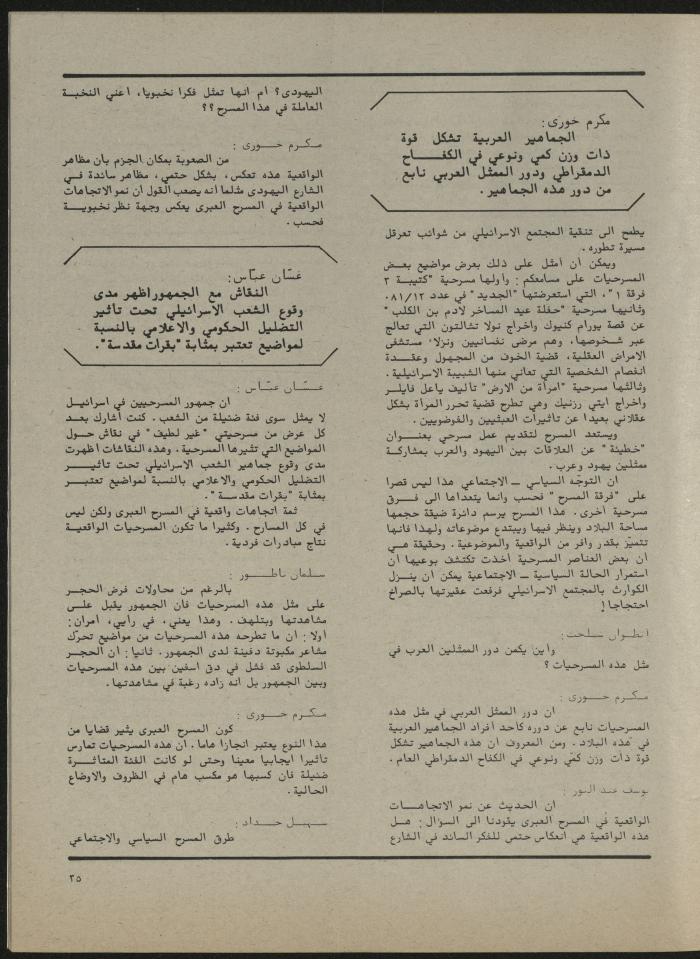 مكرم خورى:
الجماهير العربية تشكل قوة
ذات وزن كمي ونوعي في الكفاح
الدمقراطي ودور الممثل العربي نابع
من دور هذه الجماهير.
يطمح الى تنقية المجتمع الاسرائيلي من شوائب تعرقل
مسيرة تطوره.
ويمكن أن أمثل على ذلك بعرض مواضيع بعض
المسرحيات على مسامعكم: وأولها مسرحية "كتيبة ٣
فرقة ١"، التي استعرضتها "الجديد" في عدد ٠٨١/١٢
وثانيها مسرحية "حفلة عيد المساخر لادم بن الكلب"
عن قصة يورام كنيوك واخراج نولا تشالتون التي تعالج
عبر شخوصها، وهم مرضى نفسانيين ونزلاء مستشفى
الامراض العقلية، قضية الخوف من المجهول وعقدة
انفصام الشخصية التي تعاني منها الشبيبة الاسرائيلية.
وثالثها مسرحية "امرأة من الارض" تأليف ياعل فايلر
واخراج ايتي رزنيك وهي تطرح قضية تحرر المرأة بشكل
عقلاني بعيدا عن تأثيرات العبثيين والفوضويين.
ويستعد المسرح لتقديم عمل مسرحي بعنوان
"خطيئة" عن العلاقات بين اليهود والعرب بمشاركة
ممثلين يهود وعرب.
ان التوجّه السياسي ـ الاجتماعي هذا ليس قصرا
على "فرقة المسرح" فحسب وانما يتعداها الى فرق
مسرحية أخرى. هذا المسرح يرسم دائرة ضيقة حجمها
مساحة البلاد وينظر فيها ويبتدع موضوعاته ولهذا فانها
تتميّز بقدر وافر من الواقعية والموضوعية. وحقيقة هي
أن بعض العناصر المسرحية أخذت تكتشف بوعيها أن
استمرار الحالة السياسية ـ الاجتماعية يمكن أن ينزل
الكوارث بالمجتمع الاسرائيلي فرفعت عقيرتها بالصراخ
احتجاجا!
انطوان شلحت:
وأين يكمن دور الممثلين العرب في
مثل هذه المسرحيات؟
مكرم خورى:
ان دور الممثل العربي في مثل هذه
المسرحيات نابع عن دوره كأحد أفراد الجماهير العربية
في هذه البلاد. ومن المعروف أن هذه الجماهير تشكل
قوة ذات وزن كمّي ونوعي في الكفاح الدمقراطي العام.
يوسف عبد النور:
ان الحديث عن نمو الاتجاهات
الواقعية في المسرح العبرى يقودنا الى السؤال: هل
هذه الواقعية هي انعكاس حتمي للفكر السائد في الشارع
اليهودى؟ أم انها تمثل فكرا نخبويا، أعني النخبة
العاملة في هذا المسرح؟؟
مكرم خورى:
من الصعوبة بمكان الجزم بأن مظاهر
الواقعية هذه تعكس، بشكل حتمي، مظاهر سائدة في
الشارع اليهودى مثلما انه يصعب القول أن نمو الاتجاهات
الواقعية في المسرح العبرى يعكس وجهة نظر نخبوية
فحسب.
غسّان عبّاس:
النقاش مع الجمهور اظهر مدى
وقوع الشعب الاسرائيلي تحت تأثير
التضليل الحكومي والاعلامي بالنسبة
لمواضيع تعتبر بمثابة "بقرات مقدسة".
غسّان عبّاس:
ان جمهور المسرحيين في اسرائيل
لا يمثل سوى فئة ضئيلة من الشعب. كنت أشارك بعد
كل عرض من مسرحيتي "غير لطيف" في نقاش حول
المواضيع التي تثيرها المسرحية. وهذه النقاشات أظهرت
مدى وقوع جماهير الشعب الاسرائيلي تحت تأثير
التضليل الحكومي والاعلامي بالنسبة لمواضيع تعتبر
بمثابة "بقرات مقدسة".
ثمة اتجاهات واقعية في المسرح العبرى ولكن ليس
في كل المسارح. وكثيرا ما تكون المسرحيات الواقعية
نتاج مبادرات فردية.
سلمان ناطور:
بالرغم من محاولات فرض الحجر
على مثل هذه المسرحيات فان الجمهور يقبل على
مشاهدتها وبتلهف. وهذا يعني، في رأيي، أمران:
أولا: ان ما تطرحه هذه المسرحيات من مواضيع تحرّك
مشاعر مكبوتة دفينة لدى الجمهور. ثانيا: ان الحجر
السلطوى قد فشل في دق اسفين بين هذه المسرحيات
وبين الجمهور بل انه زاده رغبة في مشاهدتها.
مكرم خورى:
كون المسرح العبرى يثير قضايا من
هذا النوع يعتبر انجازا هاما. ان هذه المسرحيات تمارس
تأثيرا ايجابيا معينا وحتى لو كانت الفئة المتأثرة
ضئيلة فان كسبها هو مكسب هام في الظروف والاوضاع
الحالية.
سهيل حداد:
طرق المسرح السياسي والاجتماعي
٣٥